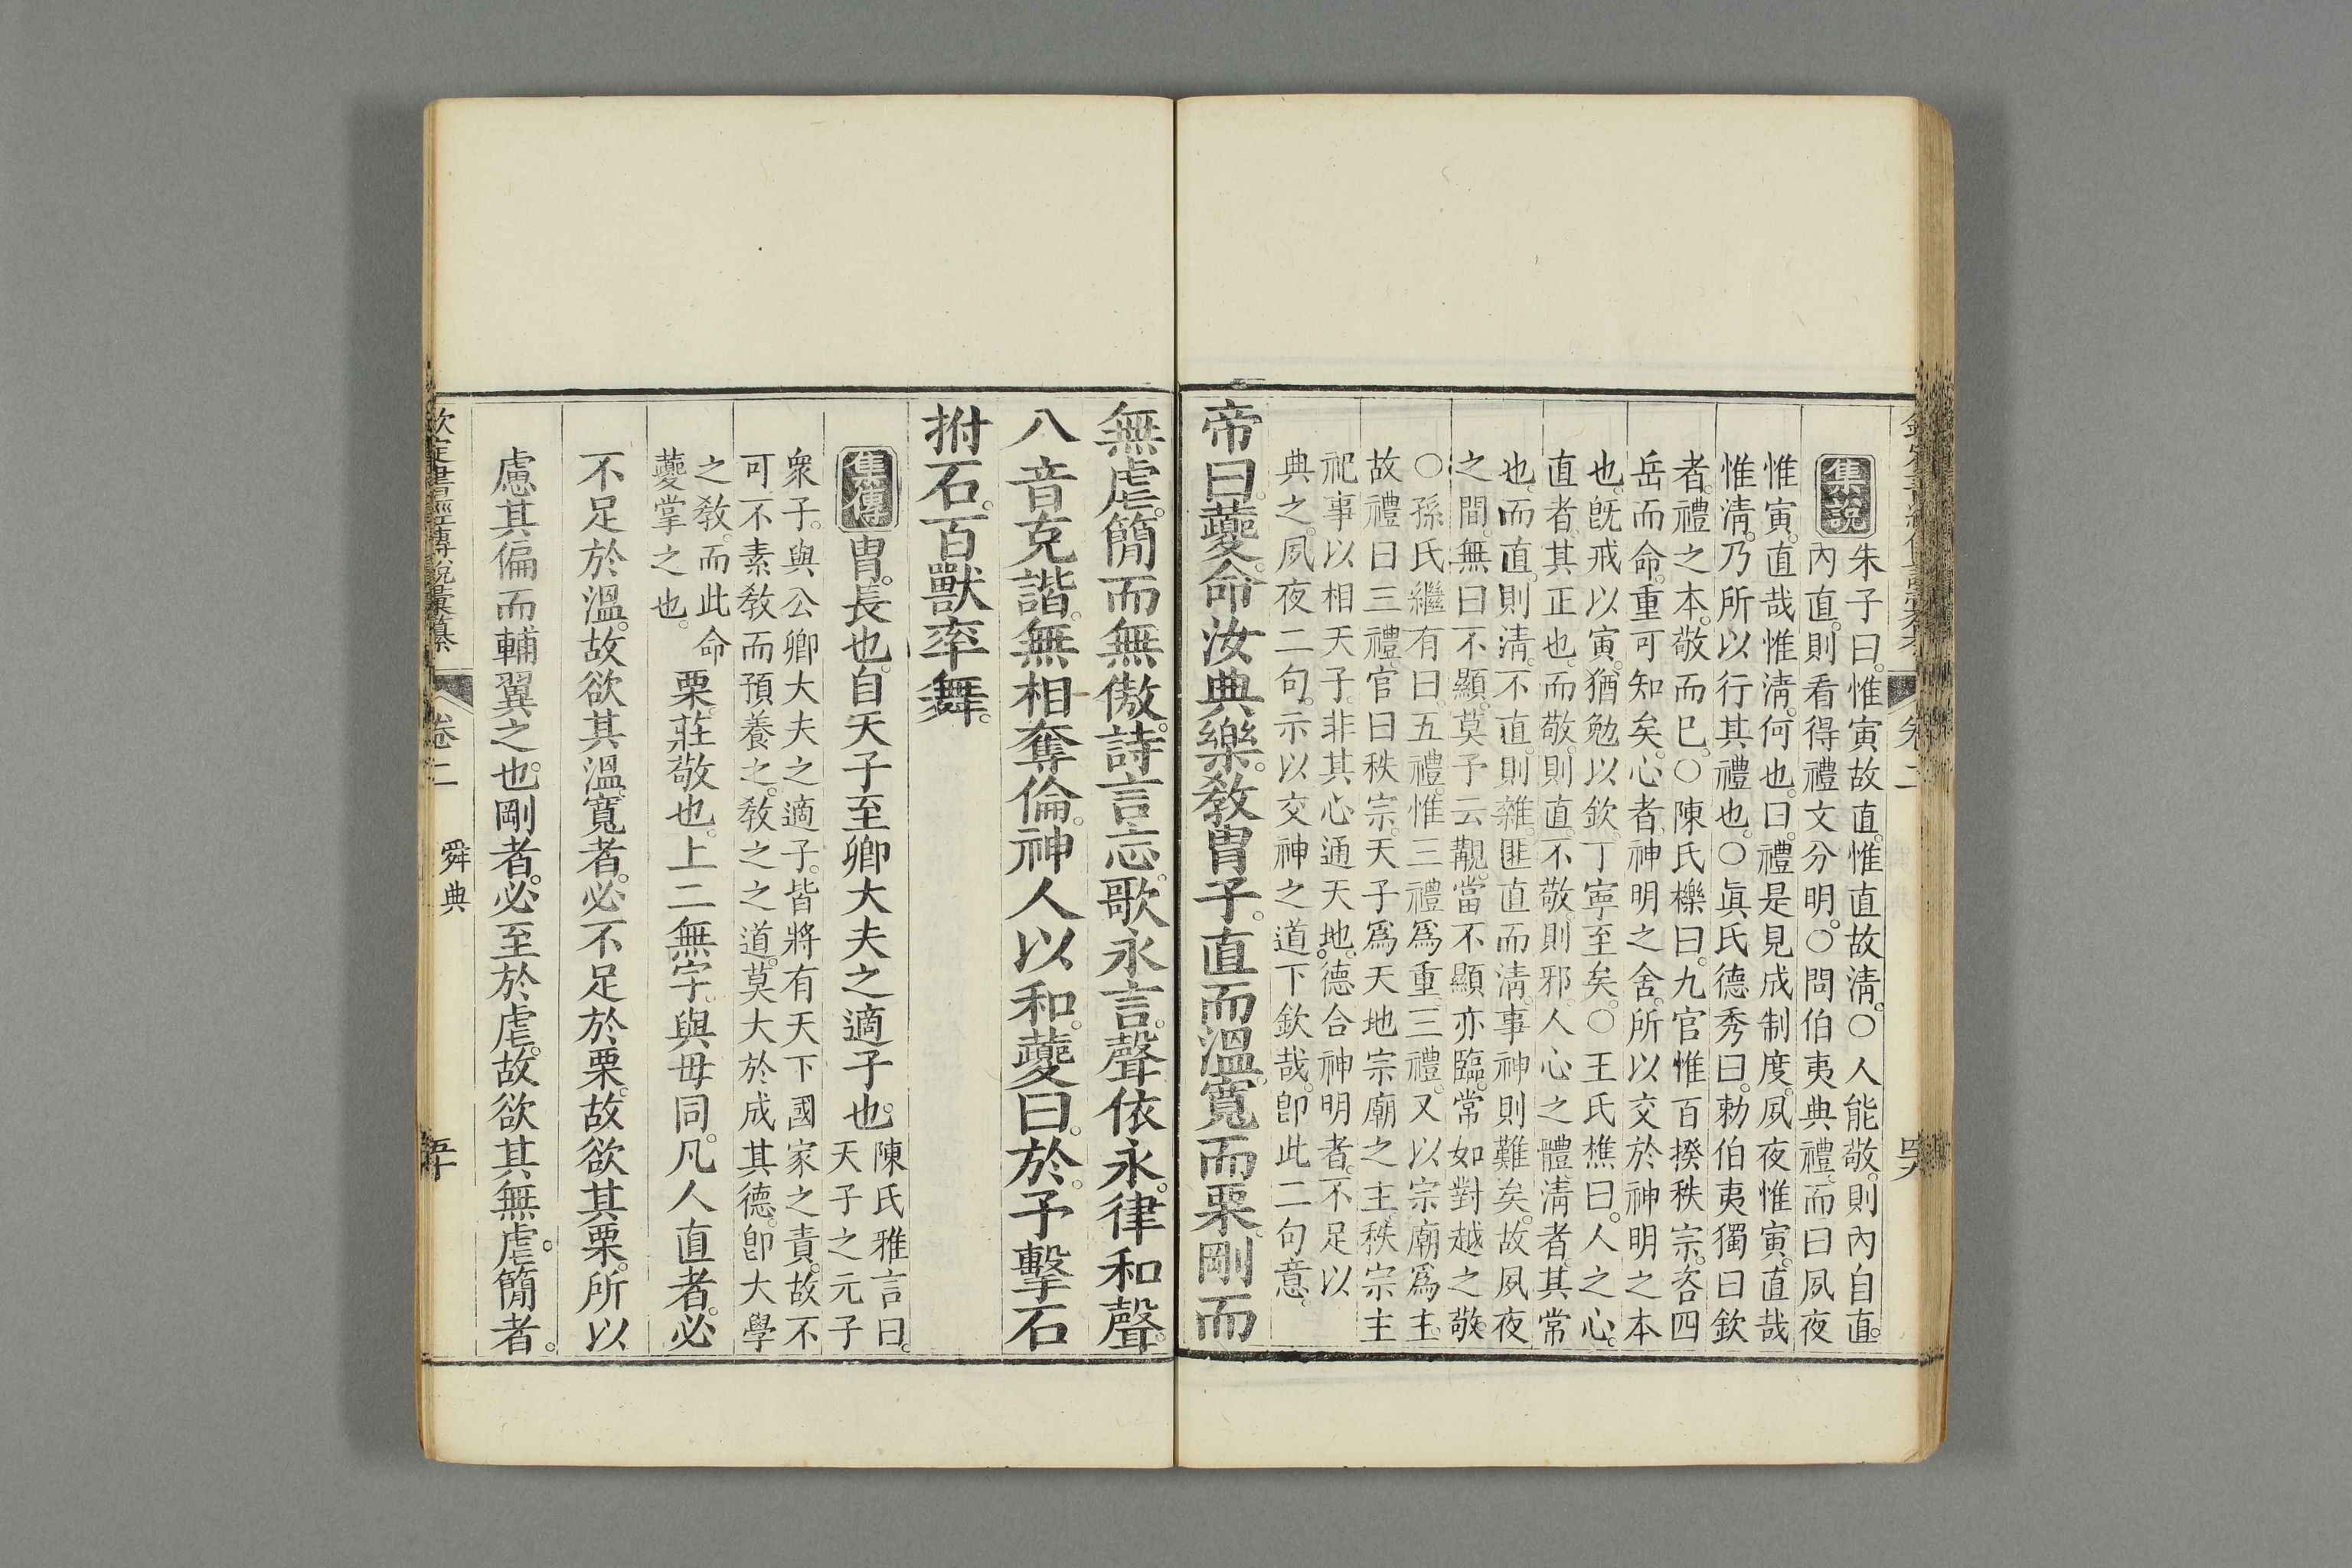 集說
朱子曰惟寅故直惟直故淸○人能敬則內自直
內直則看得禮文分明○問伯夷典禮而曰夙夜
惟寅直哉惟淸何也曰禮是見成制度夙夜惟寅直哉
惟淸乃所以行其禮也○眞氏德秀曰勅伯夷獨曰欽
者禮之本敬而已○陳氏櫟曰九官惟百揆秩宗咨四
岳而命重可知矣心者神明之舍所以交於神明之本
也旣戒以寅猶勉以欽丁寧至矣○王氏樵曰人之心
直者其正也而敬則直不敬則邪人心之體淸者其常
也而直則淸不直則雜匪直而淸事神則難矣故夙夜
之間無曰不顯莫予云覯當不顯亦臨常如對越之敬
○孫氏繼有曰五禮惟三禮爲重三禮又以宗廟爲主
故禮曰三禮官曰秩宗天子爲天地宗廟之主秩宗主
祀事以相天子非其心通天地德合神明者不足以
典之夙夜二句示以交神之道下欽哉卽此二句意
帝曰夔命汝典樂敎胄子直而溫寬而栗剛而
卷二
無虐簡而無傲詩言志歌永言聲依永律和聲
八音克諧無相奪倫神人以和夔曰於予擊石
拊石百獸率舞
集傳
胄長也自天子至卿大夫之適子也
陳氏雅言曰
天子之元子
衆子與公卿大夫之適子皆將有天下國家之責故不
可不素敎而預養之敎之之道莫大於成其德卽大學
之敎而此命
夔掌之也
栗莊敬也上二無字與毋同凡人直者必
不足於溫故欲其溫寬者必不足於栗故欲其栗所以
慮其偏而輔翼之也剛者必至於虐故欲其無虐簡者
欽定書經傳說彙纂
卷二
舜典
五十